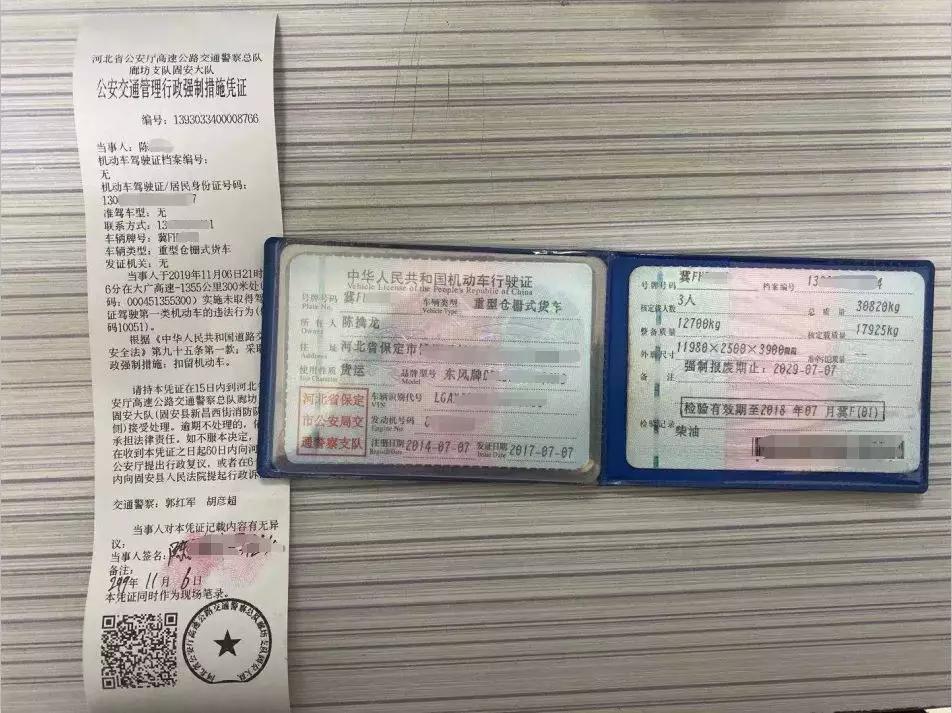 河北省公安厅高速公路交通警察总队
廊坊支队固安大队
公安交通管理行政强制措施凭证
编号：1393033400008766
当事人：陈
机动车驾驶证档案编号：
无
机动车驾驶证/居民身份证号码：
130 7
准驾车型：无
联系方式：13 1
车辆牌号：冀F
车辆类型：重型仓栅式货车
发证机关：无
当事人于2019年11月06日21时
6分在大广高速-1355公里300米处(
码：000451355300）实施未取得驾
证驾驶第一类机动车的违法行为(
码10051)。
根据《中华人民共和国道路交
安全法》第九十五条第一款；采取
政强制措施：扣留机动车。
请持本凭证在15日内到河北省
安厅高速公路交通警察总队廊坊
固安大队(固安县新昌西街消防队
侧)接受处理。逾期不处理的，依
承担法律责任。如不服本决定，
在收到本凭证之日起60日内向河
公安厅提出行政复议，或者在6
内向固安县人民法院提起行政诉
交通警察：郭红军 胡彦超
当事人对本凭证记载内容有无异
议：
当事人签名：陈
备注：
2019年 11月 6日
本凭证同时作为现场笔录。
中华人民共和国机动车行驶证
Vehicle License of the People's Republic of China
号牌号码 冀F
Plate No.
车辆类型 重型仓栅式货车
Vehicle Type
所有人 陈擒龙
Owner
住址 河北省保定市
Address
使用性质 货运
Use Character
品牌型号 东风牌
Model
河北省保定
市公安局交
通警察支队
车辆识别代号 LGA
VIN
发动机号码
Engine No.
注册日期 2014-07-07
Register Date
发证日期 2017-07-07
Issue Date
号牌号码 冀F
档案编号 13 4
核定载人数 3人
总质量 30820kg
整备质量 12700kg
核定载质量 17925kg
外廓尺寸 11980×2500×3900mm
准牵引总质量
备注 强制报废期止：2029-07-07
检验有效期至2018年07月冀F(01)
检验记录
柴油